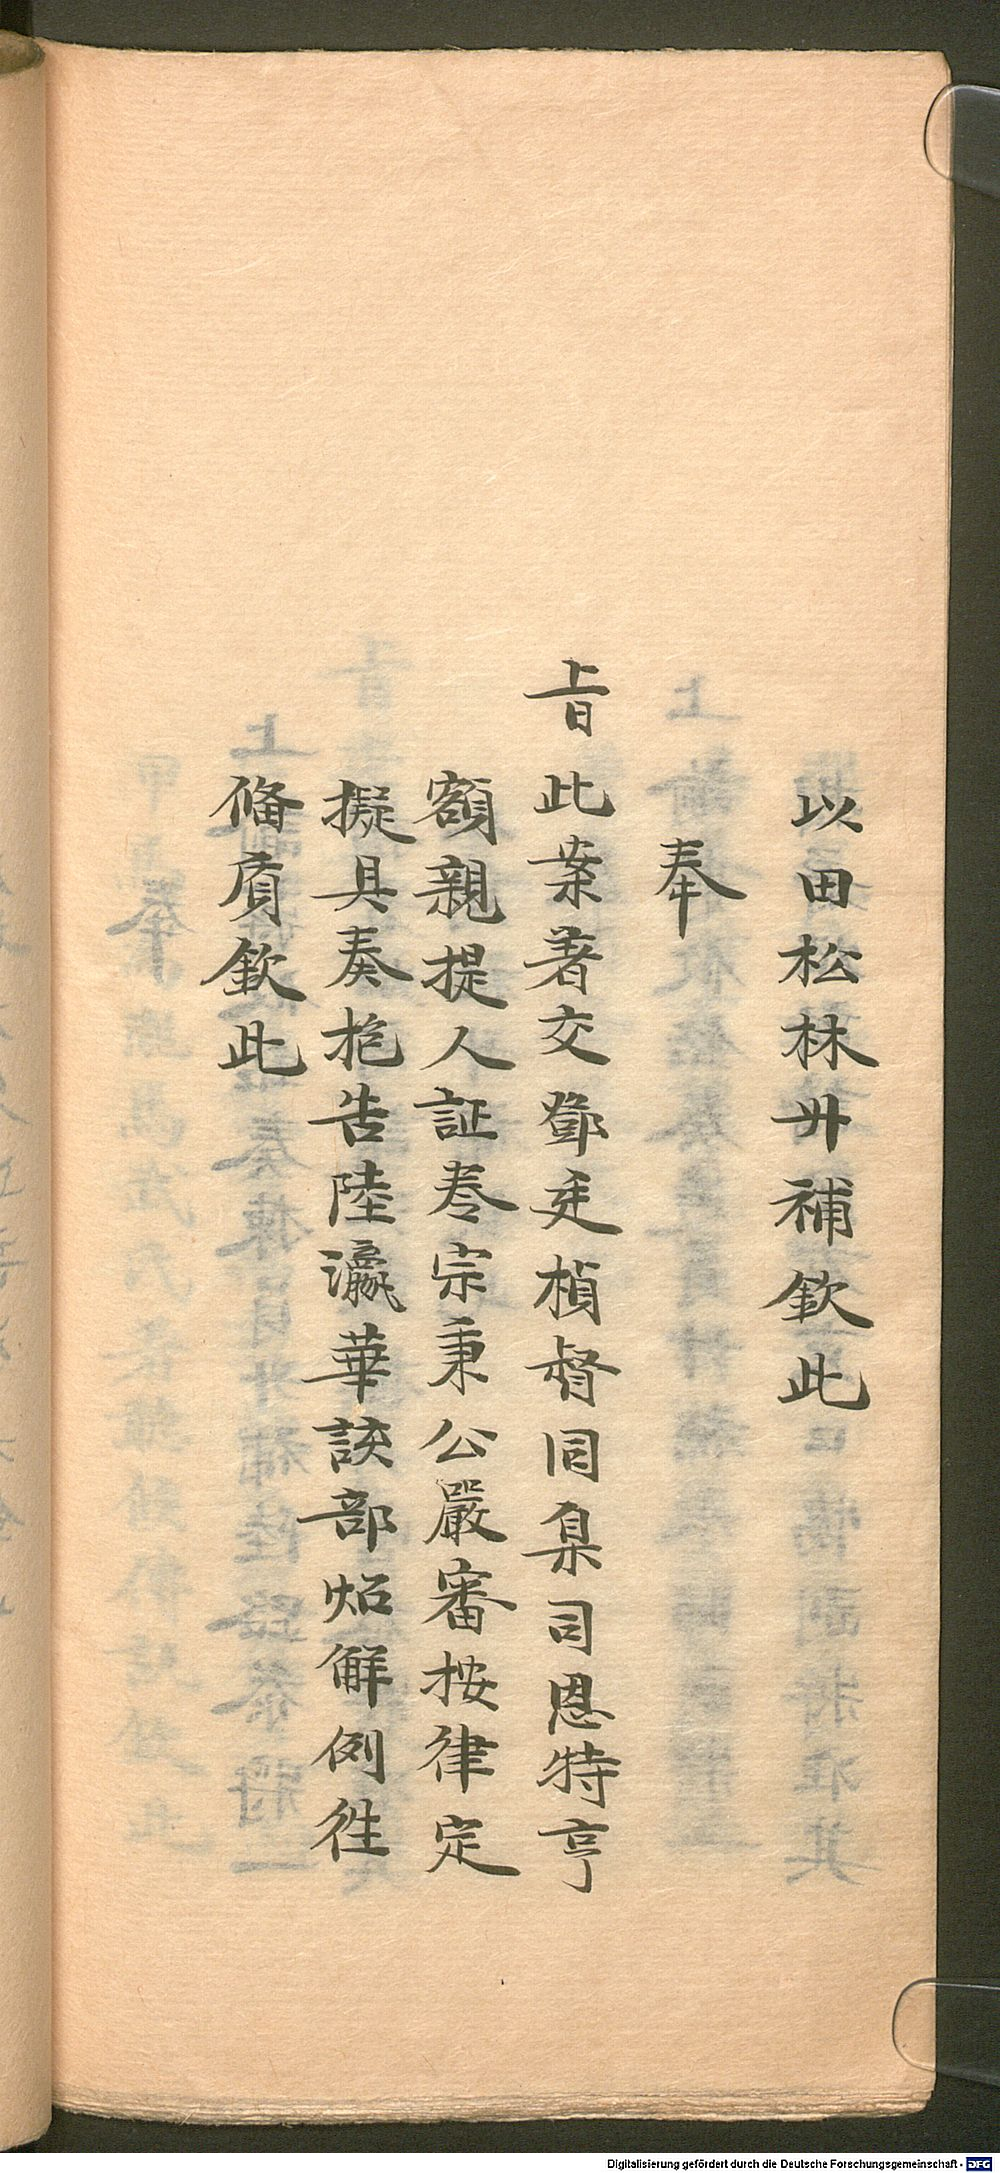 以田松林升補欽此
奉
旨此案著交鄧廷楨督同臬司恩特亨
額親提人証卷宗秉公嚴審按律定
擬具奏抱告陸瀛華該部照解例徃
偹質欽此
Digitalisierung gefördert durch die Deutsche Forschungsgemeinschaft - DFG